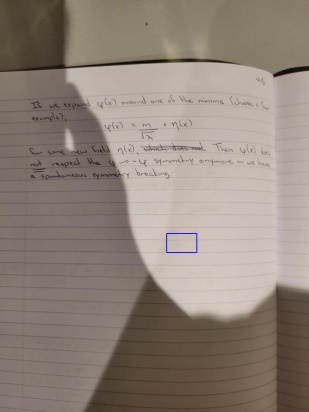 45
If we expand φ(x) around one of the minima (choose + for
example),
φ(x) = m/√λ + η(x)
for some new field η(x), which does not Then φ(x) does
not respect the φ → -φ symmetry anymore — we have
a spontaneous symmetry breaking.